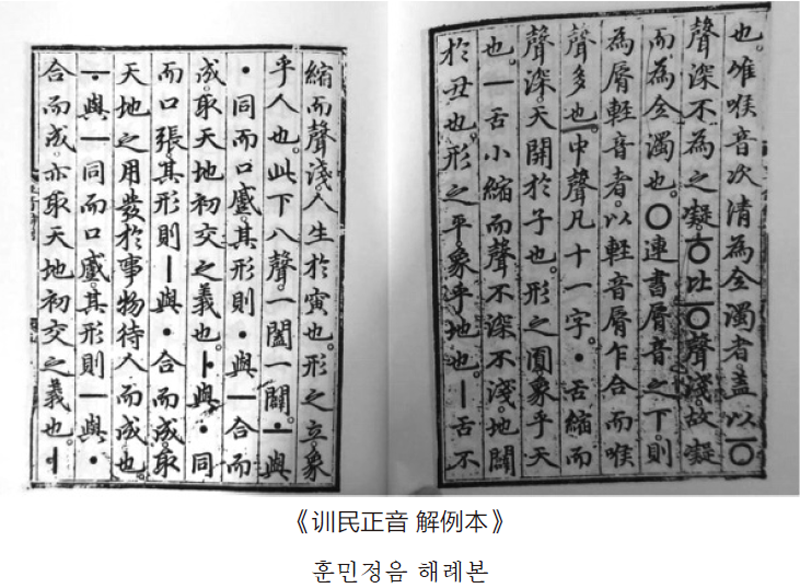 也。唯喉音次清為全濁者。盖以ㆆ
聲深不為之凝。ㅎ比ㆆ聲淺。故凝
而為全濁也。ㅇ連書脣音之下。則
為脣輕音者。以輕音脣乍合而喉
聲多也。中聲凡十一字。ㆍ舌縮而
聲深。天開於子也。形之圓。象乎天
也。ㅡ舌小縮而聲不深不淺。地闢
於丑也。形之平。象乎地也。ㅣ舌不
縮而聲淺。人生於寅也。形之立。象
乎人也。此下八聲。一闔一闢。ㅗ與
ㆍ同而口蹙。其形則ㆍ與ㅡ合而
成。取天地初交之義也。ㅏ與ㆍ同
而口張。其形則ㅣ與ㆍ合而成。取
天地之用發於事物待人而成也。
ㅜ與ㅡ同而口蹙。其形則ㅡ與ㆍ
合而成。亦取天地初交之義也。ㅓ
《训民正音 解例本》
훈민정음 해례본